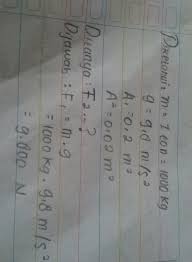 Diketahui : m = 1 ton = 1000 kg
g = 9,8 m/s²
A₁ = 0,2 m²
A² = 0,02 m²
Ditanya : F2 ... ?
Dijawab : F₁ = m . g
= 1000 kg . 9,8 m/s²
= 9.800 N